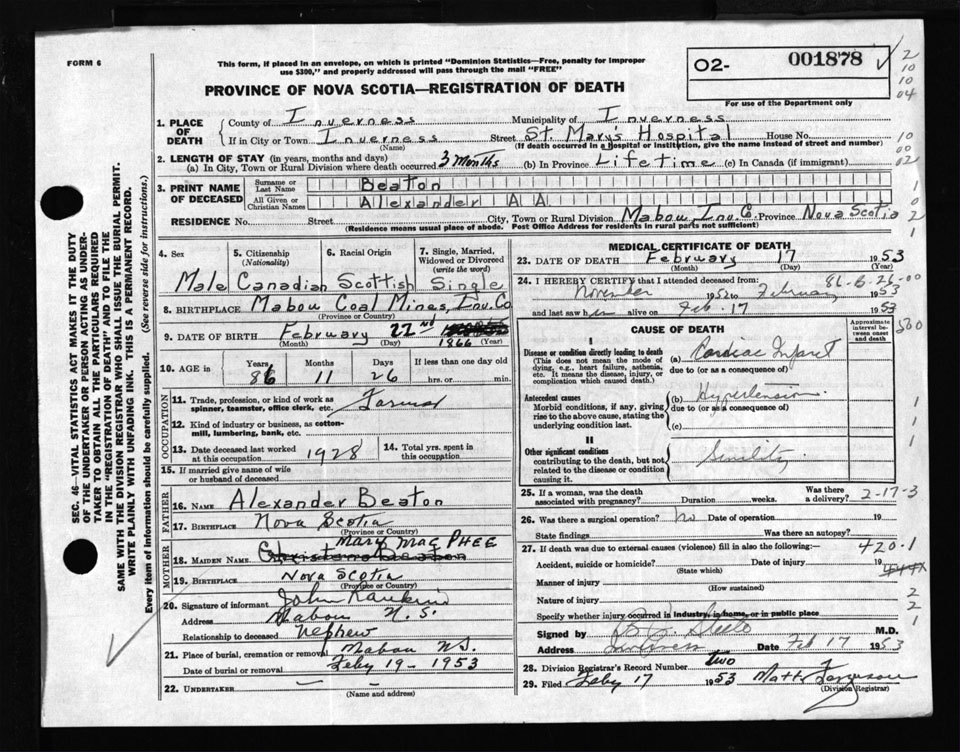 FORM 6
This form, if placed in an envelope, on which is printed "Dominion Statistics—Free, penalty for improper
use $300," and properly addressed will pass through the mail "FREE"
PROVINCE OF NOVA SCOTIA—REGISTRATION OF DEATH
O2- 001878
For use of the Department only
2
10
10
04
1. PLACE OF DEATH
County of Inverness Municipality of Inverness
If in City or Town Inverness Street St. Marys Hospital House No.
(Name) (If death occurred in a hospital or institution, give the name instead of street and number)
10
00
02
2. LENGTH OF STAY (in years, months and days)
(a) In City, Town or Rural Division where death occurred 3 Months (b) In Province Lifetime (c) In Canada (if immigrant)
3. PRINT NAME OF DECEASED
Surname or Last Name Beaton
All Given or Christian Names Alexander A A
RESIDENCE No. Street City, Town or Rural Division Mabou, Inv. C. Province Nova Scotia
(Residence means usual place of abode. Post Office Address for residents in rural parts not sufficient)
1
0
2
1
SEC. 46—VITAL STATISTICS ACT MAKES IT THE DUTY
OF THE UNDERTAKER OR PERSON ACTING AS UNDER-
TAKER TO OBTAIN ALL THE PARTICULARS REQUIRED
IN THE "REGISTRATION OF DEATH" AND TO FILE THE
SAME WITH THE DIVISION REGISTRAR WHO SHALL ISSUE THE BURIAL PERMIT.
WRITE PLAINLY WITH UNFADING INK. THIS IS A PERMANENT RECORD.
Every item of information should be carefully supplied. (See reverse side for instructions.)
4. Sex 5. Citizenship (Nationality) 6. Racial Origin 7. Single, Married, Widowed or Divorced (write the word)
Male Canadian Scottish Single
8. BIRTHPLACE Mabou Coal Mines, Inv. Co
(Province or Country)
9. DATE OF BIRTH February 22nd 1966
(Month) (Day) (Year)
10. AGE in Years Months Days If less than one day old
86 11 26 hrs. or min.
OCCUPATION
11. Trade, profession, or kind of work as
spinner, teamster, office clerk, etc. Farmer
12. Kind of industry or business, as cotton-
mill, lumbering, bank, etc.
13. Date deceased last worked at this occupation 1928
14. Total yrs. spent in this occupation
15. If married give name of wife
or husband of deceased
FATHER
16. NAME Alexander Beaton
17. BIRTHPLACE Nova Scotia
(Province or Country)
MOTHER
Mary Mac PHEE
18. MAIDEN NAME
19. BIRTHPLACE Nova Scotia
(Province or Country)
20. Signature of informant John Rankin
Address Mabou N. S.
Relationship to deceased Nephew
21. Place of burial, cremation or removal Mabou N.S.
Date of burial or removal Feby 19 - 1953
22. UNDERTAKER — —
(Name and address)
MEDICAL CERTIFICATE OF DEATH
23. DATE OF DEATH February 17 1953
(Month) (Day) (Year)
86-6-26-00
24. I HEREBY CERTIFY that I attended deceased from
November 1952 to February 1953
and last saw h alive on Feb. 17 1953
CAUSE OF DEATH
Approximate interval between onset and death
560
I
Disease or condition directly leading to death
(This does not mean the mode of
dying, e.g., heart failure, asthenia,
etc. It means the disease, injury, or
complication which caused death.)
(a) Cardiac Infarct
due to (or as a consequence of)
Antecedent causes
Morbid conditions, if any, giving
rise to the above cause, stating the
underlying condition last.
(b) Hypertension
due to (or as a consequence of)
(c)
1
1
1
II
Other significant conditions
contributing to the death, but not
related to the disease or condition
causing it.
Senility
25. If a woman, was the death associated with pregnancy? Duration weeks. Was there a delivery?
2-17-3
26. Was there a surgical operation? no Date of operation 19
State findings Was there an autopsy?
27. If death was due to external causes (violence) fill in also the following:—
420.1
Accident, suicide or homicide? Date of injury 19
(State which)
Manner of injury
(How sustained)
Nature of injury
Specify whether injury occurred in industry, in home, or in public place
2
2
1
Signed by M.D.
Address Inverness Date Feb 17 1953
28. Division Registrar's Record Number two
29. Filed Feby 17 1953 Matt Ferguson
(Division Registrar)